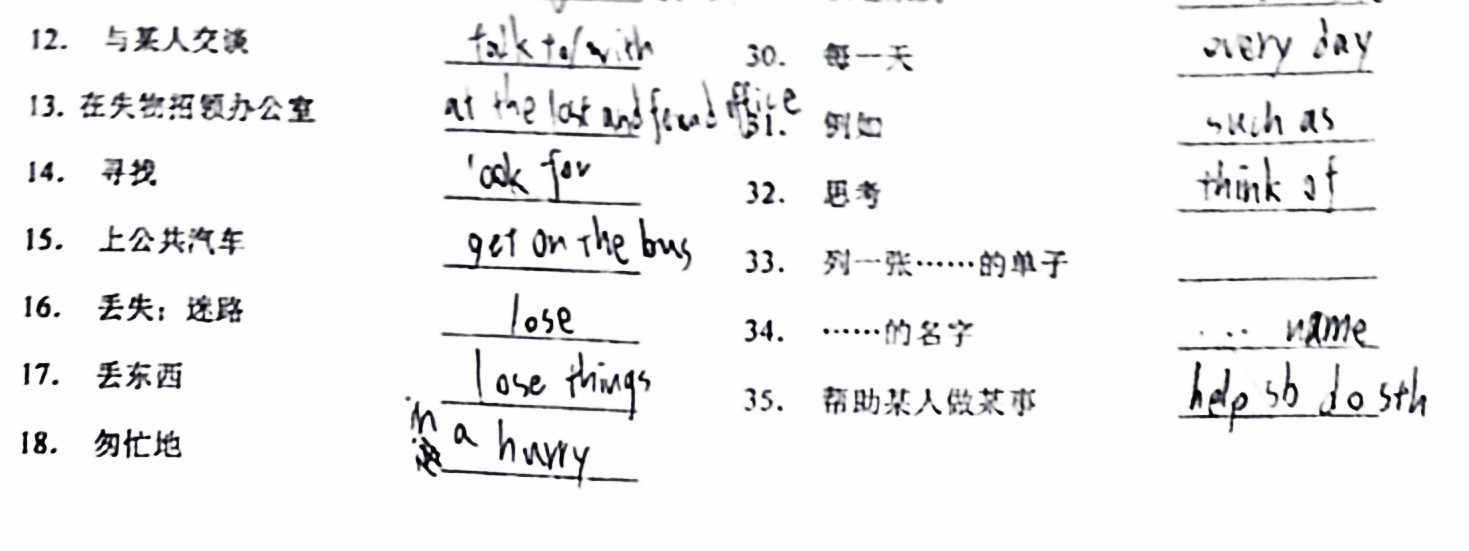 12. 与某人交谈 talk to/with
13. 在失物招领办公室 at the lost and found office
14. 寻找 look for
15. 上公共汽车 get on the bus
16. 丢失；迷路 lose
17. 丢东西 lose things
18. 匆忙地 in a hurry
30. 每一天 every day
31. 例如 such as
32. 思考 think of
33. 列一张……的单子
34. ……的名字 ... name
35. 帮助某人做某事 help sb do sth